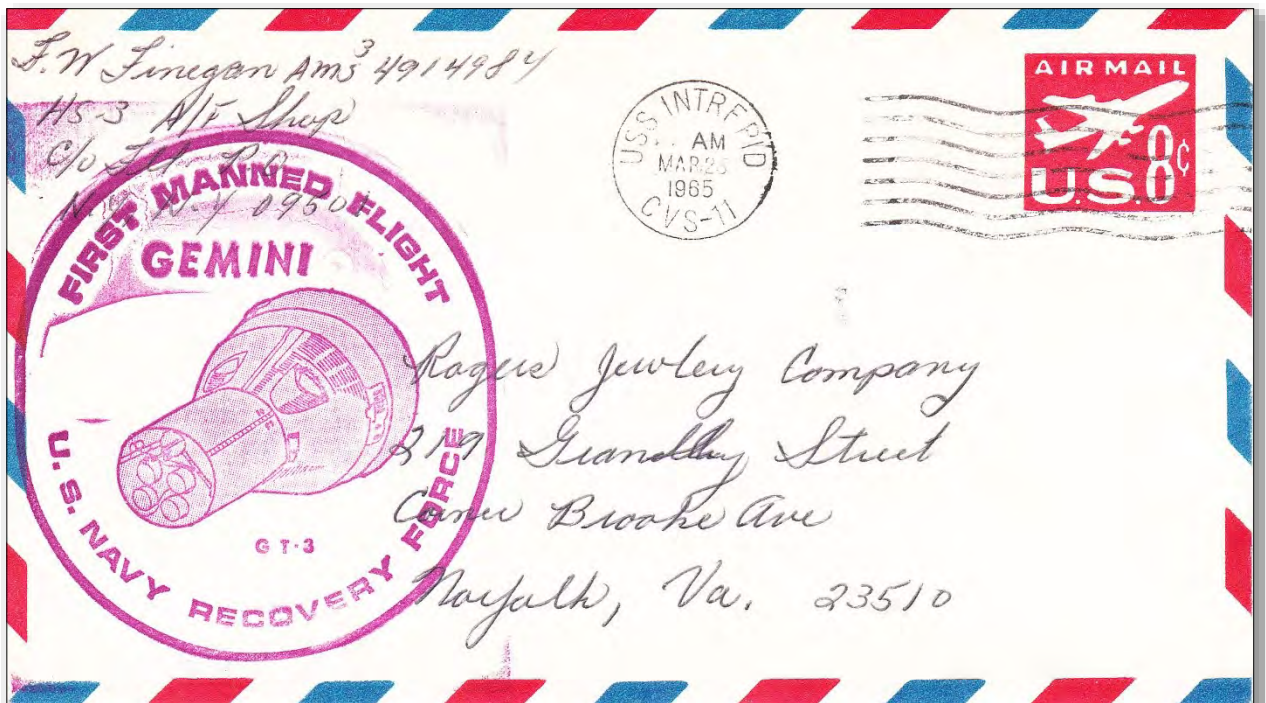 F. W Finegan AMS3 4914984
HS-3 A/F Shop
c/o F.P.O.
N.Y. N-Y 09501
USS INTREPID
AM
MAR 26
1965
CVS-11
AIR MAIL
8¢
U.S.
FIRST MANNED FLIGHT
GEMINI
GT-3
U.S. NAVY RECOVERY FORCE
Rogers Jewlery Company
219 Grandby Street
Corner Brooke Ave
Norfolk, Va. 23510